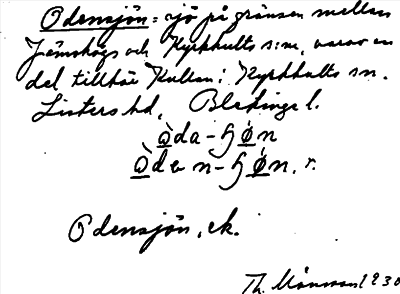 Odensjön = sjö på gränsen mellan
Jämshögs och Kyrkhults s:nr, varav en
del tillhör Kullan i Kyrkhults sn.
Listers hd, Blekinge l.
òda-ɧǿn
òden-ɧǿn. r.
Odensjön, ek.
Th. Månsson 1930